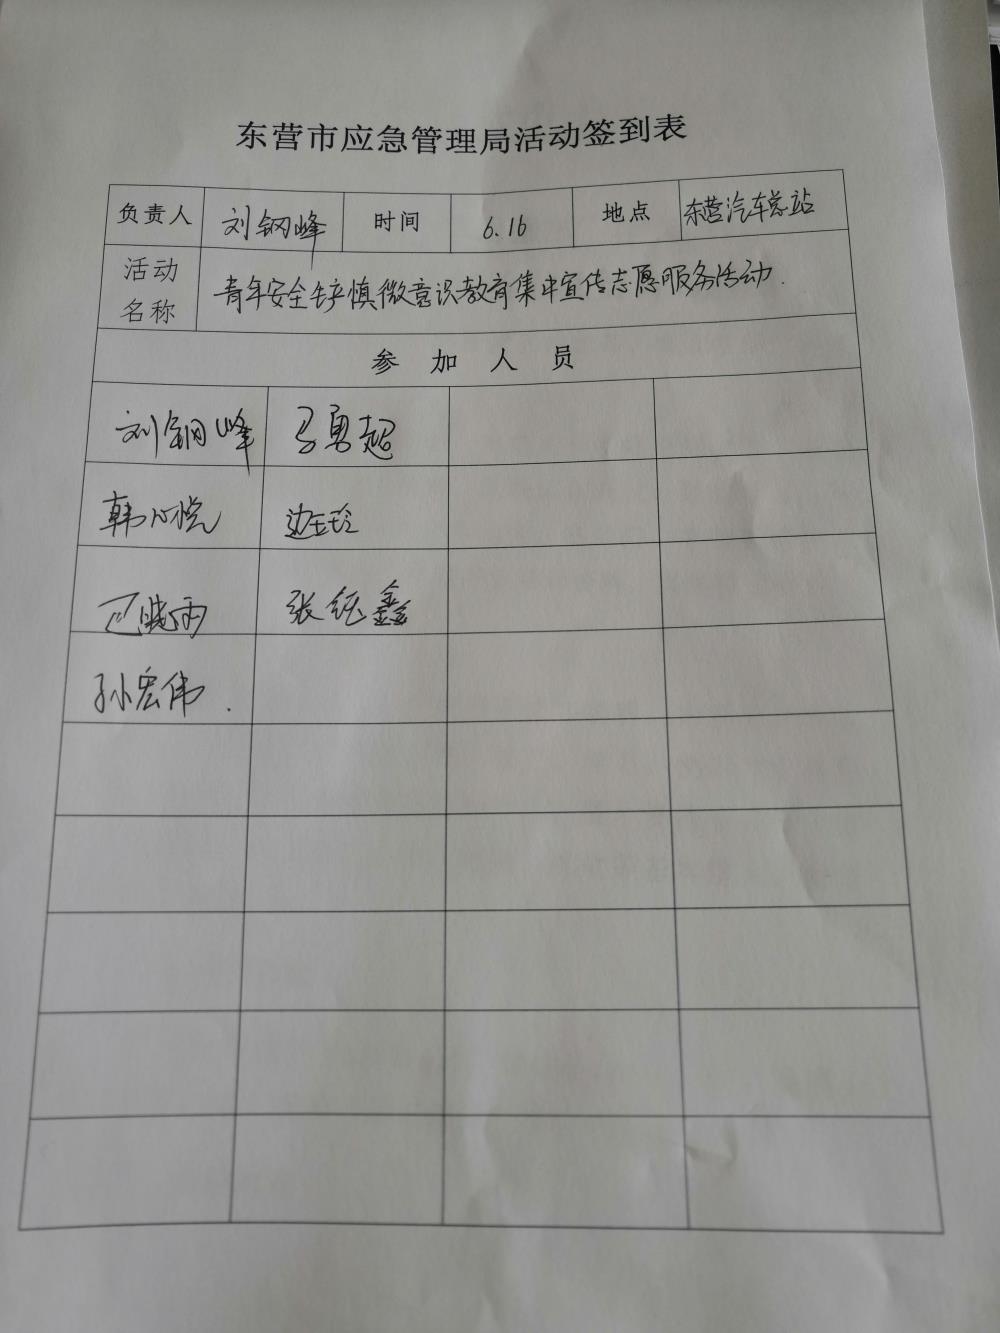 东营市应急管理局活动签到表
负责人 刘钢峰 时间 6.16 地点 东营汽车总站
活动名称 青年安全生产慎微意识教育集中宣传志愿服务活动.
参加人员
刘钢峰 马勇超
韩心悦 边玉玲
晓雨 张钰鑫
孙宏伟.